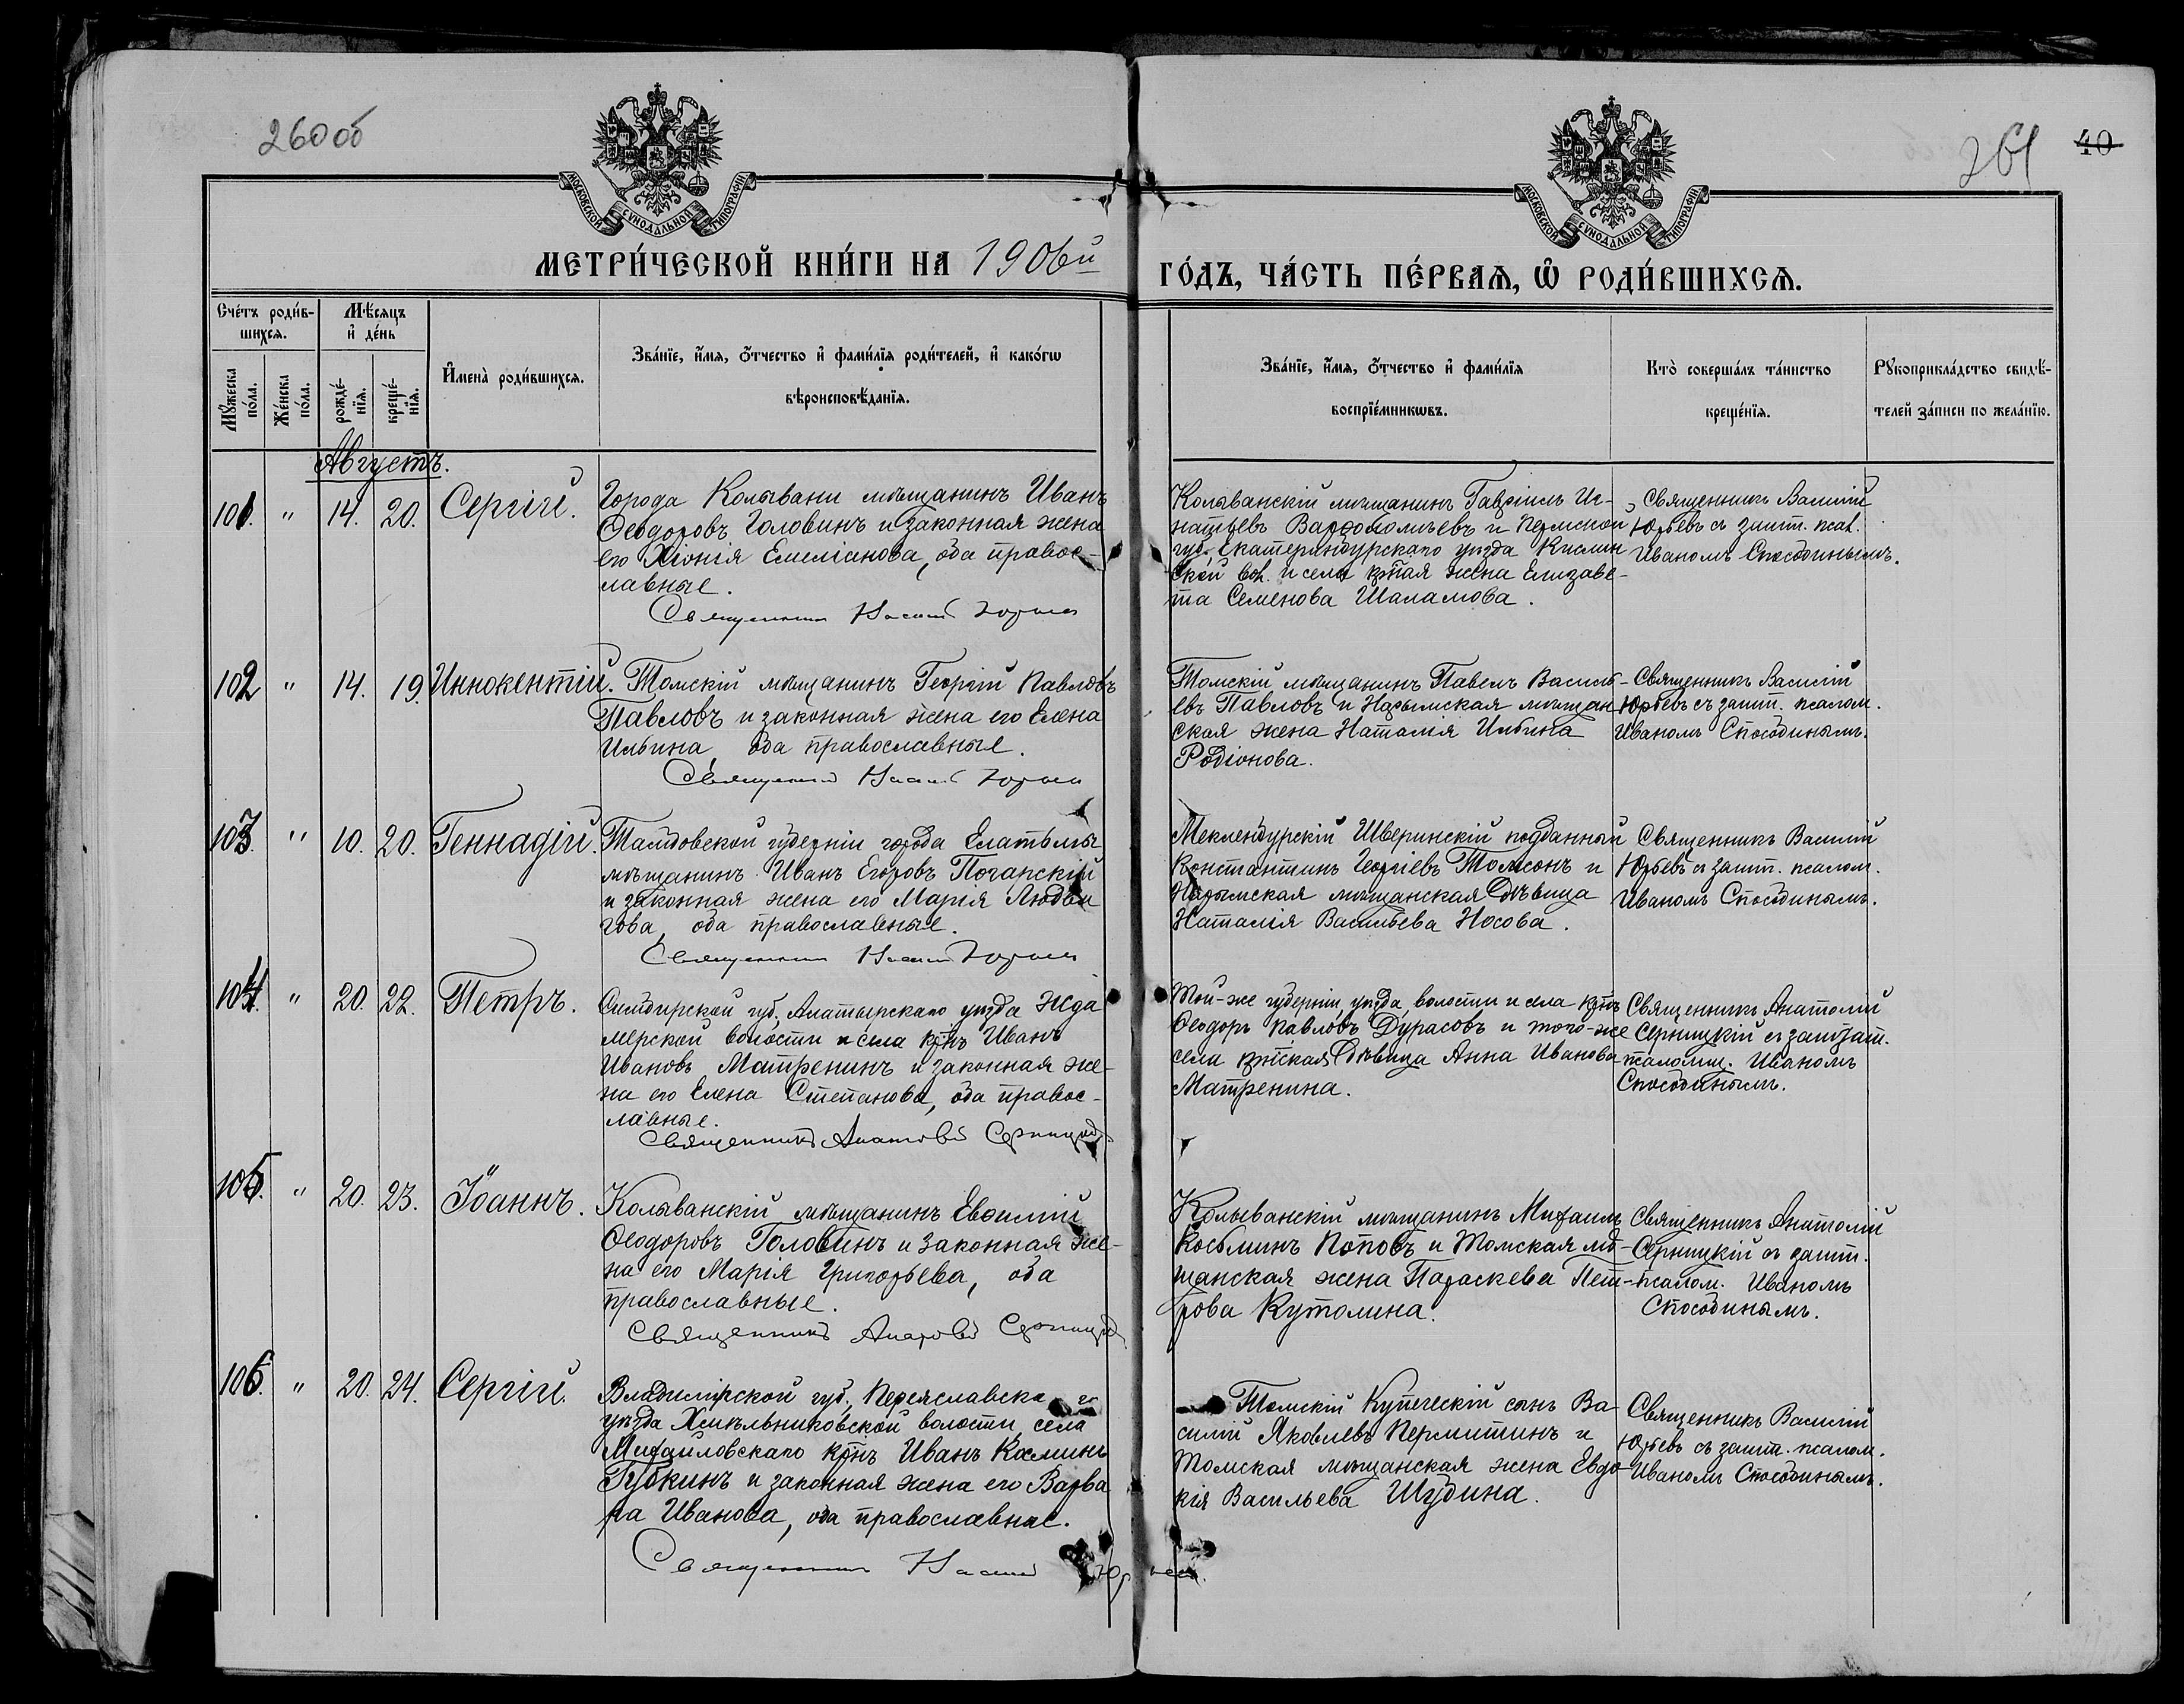 260об
261
40
МОСКОВСКОЙ СѴНОДАЛЬНОЙ ТИПОГРАФІИ
МОСКОВСКОЙ СѴНОДАЛЬНОЙ ТИПОГРАФІИ
МЕТРИ́ЧЕСКОЙ КНИ́ГИ НА 1906й ГО́ДЪ, ЧА́СТЬ ПЕ́РВАѦ, Ѡ҆ РОДИ́ВШИХСѦ.
Сче́тъ роди́в-
шихсѧ.
Мꙋ́жеска
по́ла.
Же́нска
по́ла.
Мѣ́сѧцъ
и҆ де́нь
рожде́-
нїѧ.
креще́-
нїѧ.
И҆мена̀ роди́вшихсѧ.
Зва́нїе, и҆́мѧ, ѻ҆́тчество и҆ фами́лїѧ роди́телей, и҆ како́гѡ
вѣроисповѣ́данїѧ.
Зва́нїе, и҆́мѧ, ѻ҆́тчество и҆ фами́лїѧ
воспрїе́мникѡвъ.
Кто̀ соверша́лъ та́инство
креще́нїѧ.
Рꙋкоприкла́дство свидѣ́-
телей за́писи по жела́нїю.
Августъ.
101. " 14. 20. Сергій.
Города Колывани мѣщанинъ Иванъ
Ѳеодоровъ Головинъ и законная жена
его Хіонія Емеліанова, оба правос-
лавные.
Священникъ Василій Юрьевъ
Колыванскій мѣщанинъ Гавріилъ Иг-
натьевъ Варфоломѣевъ и Пермской
губ. Екатеринбургскаго уѣзда Кыслин
ской вол. и села кр-ная жена Елизаве-
та Семенова Шаламова.
Священникъ Василій
Юрьевъ съ зашт. псал.
Иваномъ Способинымъ.
102 " 14. 19. Иннокентій.
Томскій мѣщанинъ Георгій Павловъ
Павловъ и законная жена его Елена
Ильина, оба православные.
Священникъ Василій Юрьевъ
Томскій мѣщанинъ Павелъ Василь-
евъ Павловъ и Нарымская мѣщан
ская жена Наталія Ильина
Родіонова.
Священникъ Василій
Юрьевъ съ зашт. псалом.
Иваномъ Способинымъ.
103. " 10. 20. Геннадій.
Тамбовской губерніи города Елатьмы
мѣщанинъ Иванъ Егоровъ Погарскій
и законная жена его Марія
оба православные.
Священникъ Василій Юрьевъ
Мекленбургскій Шверинскій подданный
Константинъ Георгіевъ Томсонъ и
Нарымская мѣщанская дѣвица
Наталія Васильева Носова.
Священникъ Василій
Юрьевъ съ зашт. псалом.
Иваномъ Способинымъ.
104. " 20. 22. Петръ.
Симбирской губ. Алатырскаго уѣзда Жда
мерской волости и села кр-нъ Иванъ
Ивановъ Матренинъ и законная же-
на его Елена Степанова, оба правос-
лавные.
Священникъ Анатолій Серницкій
Той-же губерніи, уѣзда, волости и села кр-нъ
Ѳеодоръ Павловъ Дурасовъ и того-же
села кр-нская дѣвица Анна Иванова
Матренина.
Священникъ Анатолій
Серницкій съ заштат.
псаломщ. Иваномъ
Способинымъ.
105. " 20. 23. Іоаннъ.
Колыванскій мѣщанинъ Евѳимій
Ѳеодоровъ Головинъ и законная же-
на его Марія Григорьева, оба
православные.
Священникъ Анатолій Серницкій
Колыванскій мѣщанинъ Михаилъ
Косьминъ Поповъ и Томская мѣ-
щанская жена Параскева Пет-
рова Кутолина.
Священникъ Анатолій
Серницкій съ зашт.
псалом. Иваномъ
Способинымъ.
106. " 20. 24. Сергій.
Владимірской губ., Переяславскаго
уѣзда Хмѣльниковской волости, села
Михайловскаго кр-нъ Иванъ Косминъ
Губкинъ и законная жена его Варва
ра Иванова, оба православные.
Священникъ Василій Юрьевъ.
Томскій Купеческій сынъ Ва-
силій Яковлевъ Пермитинъ и
Томская мѣщанская жена Евдо-
кія Васильева Шубина.
Священникъ Василій
Юрьевъ съ зашт. псалом.
Иваномъ Способинымъ.